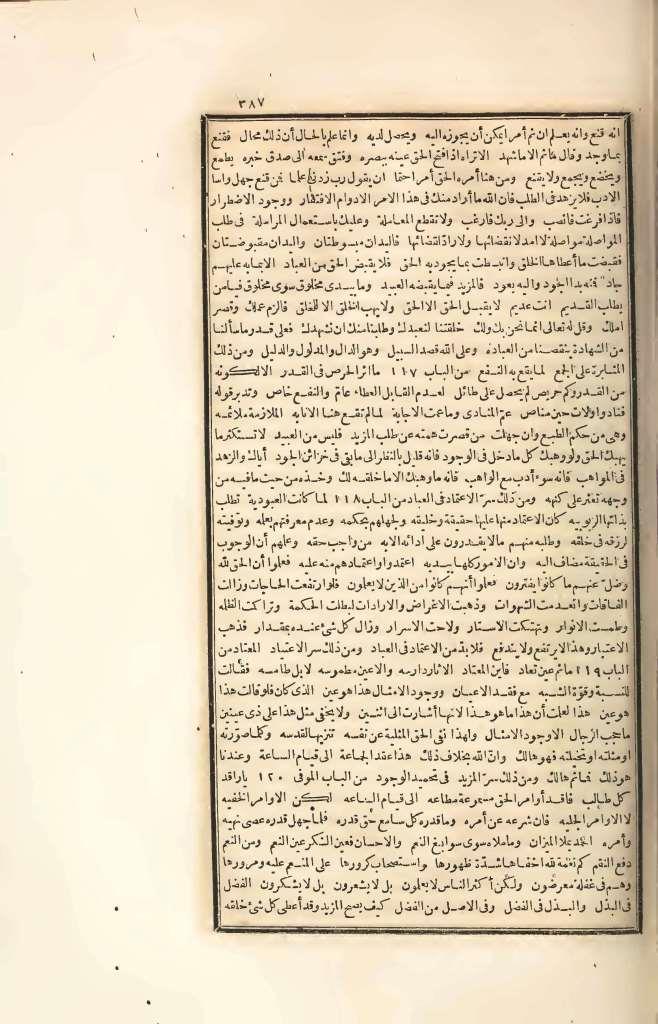 ٣٨٧
انه قنع وانه يعلم ان ثم أمرا يمكن أن يحوزه اليه ويحصل لديه وانما علم بالحال أن ذلك محال فقنع
بما وجد وقال ما ثم الا ما شهد الا تراه اذا فتح الحق عينه ببصره وفتق سمعه الى صدق خبره يطمع
ويخضع ويجمع ولا يقنع ومن هنا أمره الحق أمرا حتما ان يقول رب زدني علما فمن قنع جهل وأسا
الادب فلا يزهد في الطلب فان الله ما أراد منك في هذا الامر الا دوام الافتقار ووجود الاضطرار
فاذا فرغت فانصب والى ربك فارغب ولا تقطع المعاملة وعليك باستعمال المراسلة في طلب
المواصلة مواصلة لا امد لانقضائها ولا راد لقضائها فاليدان مبسوطتان واليدان مقبوضتان
فقبضت ما أعطاها الخلق وانبسطت بما يجود به الحق فلا يقبض الحق من العباد الا ما به عليهم
جاد فمنه بدا الجود واليه يعود فالمزيد فيما يقبضه العبيد وما بيدى مخلوق سوى مخلوق فيا من
يطلب القديم أنت عديم لا يقبل الحق الا الحق ولا يهب الخلق الا للخلق فالزم عملك وقصر
املك وقل له تعالى انما نحن بك ولك خلقتنا لنعبدك وطلبنا منك ان نشهدك فعلى قدر ما سألنا
من الشهادة ينقصنا من العبادة وعلى الله قصد السبيل وهو الدال والمدلول والدليل ومن ذلك
المثابرة على الجمع لما يقع به النفع من الباب ١١٧ ما اثر الحرص في القدر الا لكونه
من القدر وكم حريص لم يحصل على طائل لعدم القابل العطاء عام والنفع خاص وتدبر قوله
فنادوا ولات حين مناص عم المنادى وما عمت الاجابة لما لم تقع هنا الانابه الملازمة ملائمه
وهى من حكم الطبع وان جهلت من قصرت همته عن طلب المزيد فليس من العبيد لا تستكثر ما
يهبك الحق ولو وهبك كل ما دخل في الوجود فانه قليل بالنظر الى ما بقى في خزائن الجود أياك والزهد
في المواهب فانه سوء أدب مع الواهب فانه ما وهبك الا ما خلقه لك وخذه من حيث ما فيه من
وجهه تعثر على كنهه ومن ذلك سر الاعتماد في العباد من الباب ١١٨ لما كانت العبودية تطلب
بذاتها الربوبيه كان الاعتماد منها عليها حقيقة وخليقه ولجهلهم بحكمه وعدم معرفتهم بعلمه وتوقيته
لرزقه في خلقه وطلبه منهم ما لا يقدرون على ادائه الا به من واجب حقه وعلمهم أن الوجوب
في الحقيقة مضاف اليه وان الامور كلها بيديه اعتمدوا واعتمادهم منه عليه فعلموا أن الحق لله
وضل عنهم ما كانوا يفترون فعلموا أنهم كانوا من الذين لا يعلمون فلو ارتفعت الحاجات وزالت
الفاقات وانعدمت الشهوات وذهبت الاغراض والارادات لبطلت الحكمة وتراكمت الظلمه
وطمست الانوار وتهتكت الاستار ولاحت الاسرار وزال كل شئ عنده بمقدار فذهب
الاعتبار وهذا لا يرتفع ولا يندفع فلا بد من الاعتماد في العباد ومن ذلك سر الاعتياد المعتاد من
الباب ١١٩ ما ثم عين تعاد فاين المعتاد الآثار دارسه والاعين مطموسه لا بل طامسه فقالت
للنسبة وقوة الشبه مع فقد الاعيان ووجود الامثال هذا هو عين الذى كان فلو قالت هذا
هو عين هذا لعلمت أن هذا ما هو هذا لانها أشارت الى اثنين ولا يخفى مثل هذا على ذى عينين
ما حجب الرجال الا وجود الامثال ولهذا نفى الحق المثلية عن نفسه تنزيها لقدسه وكلما صورته
او مثلته او تخيلته فهو هالك وان الله بخلاف ذلك هذا عقد الجماعة الى قيام الساعة وعندنا
هو ذلك فما ثم هالك ومن ذلك سر المزيد في تحميد الوجود من الباب الموفى ١٢٠ يا راقد
كل طالب فاقد أوامر الحق مسموعة مطاعه الى قيام الساعه لكن الاوامر الخفيه
لا الاوامر الجليه فان شرعه عن أمره وما قدره كل سامع حق قدره فلما جهل قدره عصى نهيه
وأمره الحمد يملأ الميزان وما ملأه سوى سوابغ النعم والاحسان فعين الشكر عين النعم ومن النعم
دفع النقم كم نعمة لله أخفاها شدة ظهورها واستصحاب كرورها على المنعم عليه ومرورها
وهم في غفلة معرضون ولكن أكثر الناس لا يعلمون بل لا يشعرون بل لا يشكرون الفضل
في البذل والبذل في الفضل وفى الاصل من الفضل كيف يصح المزيد وقد أعطى كل شئ خلقه